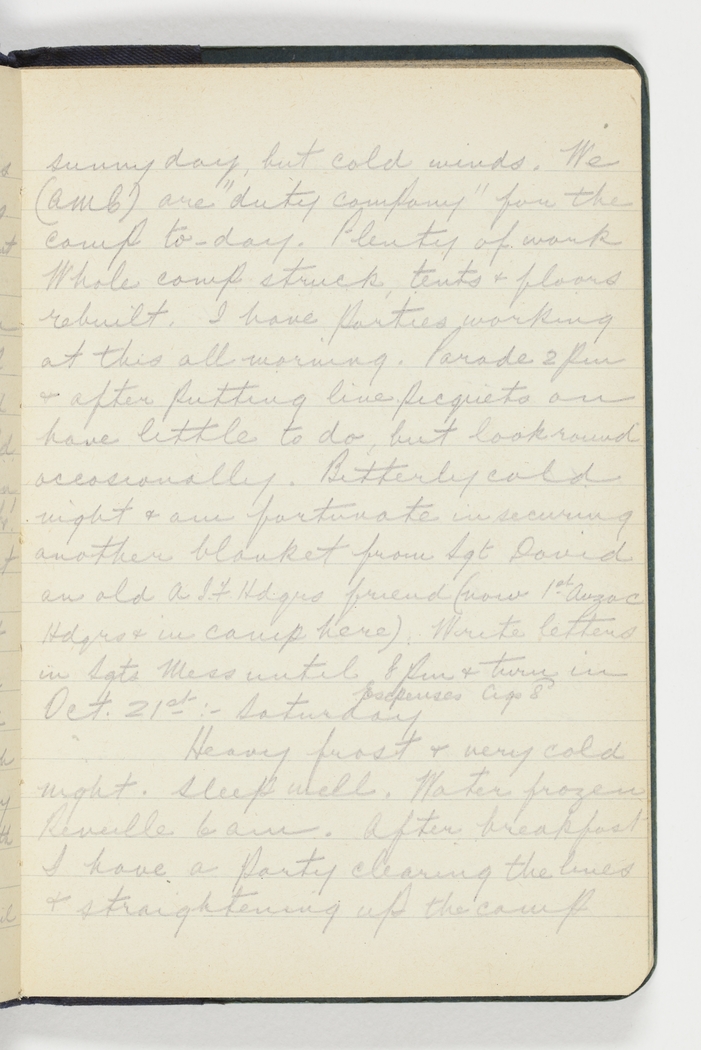 sunny day, but cold winds. We
(AMC) are "duty company" for the
camp to-day. Plenty of work
Whole camp struck, tents & floors
rebuilt. I have parties working
at this all morning. Parade 2 pm
& after putting line picquets on
have little to do, but look round
occasionally. Bitterly cold
night & am fortunate in securing
another blanket from Sgt David
an old A I F Hdqrs friend (now 1st Anzac
Hdqrs & in camp here). Write letters
in Sgts Mess until 8 pm & turn in
Expenses Cigs 8d
Oct. 21st :- Saturday
Heavy frost & very cold
night. Sleep well. Water frozen
Reveille 6 am. After breakfast
I have a party clearing the lines
& straightening up the camp